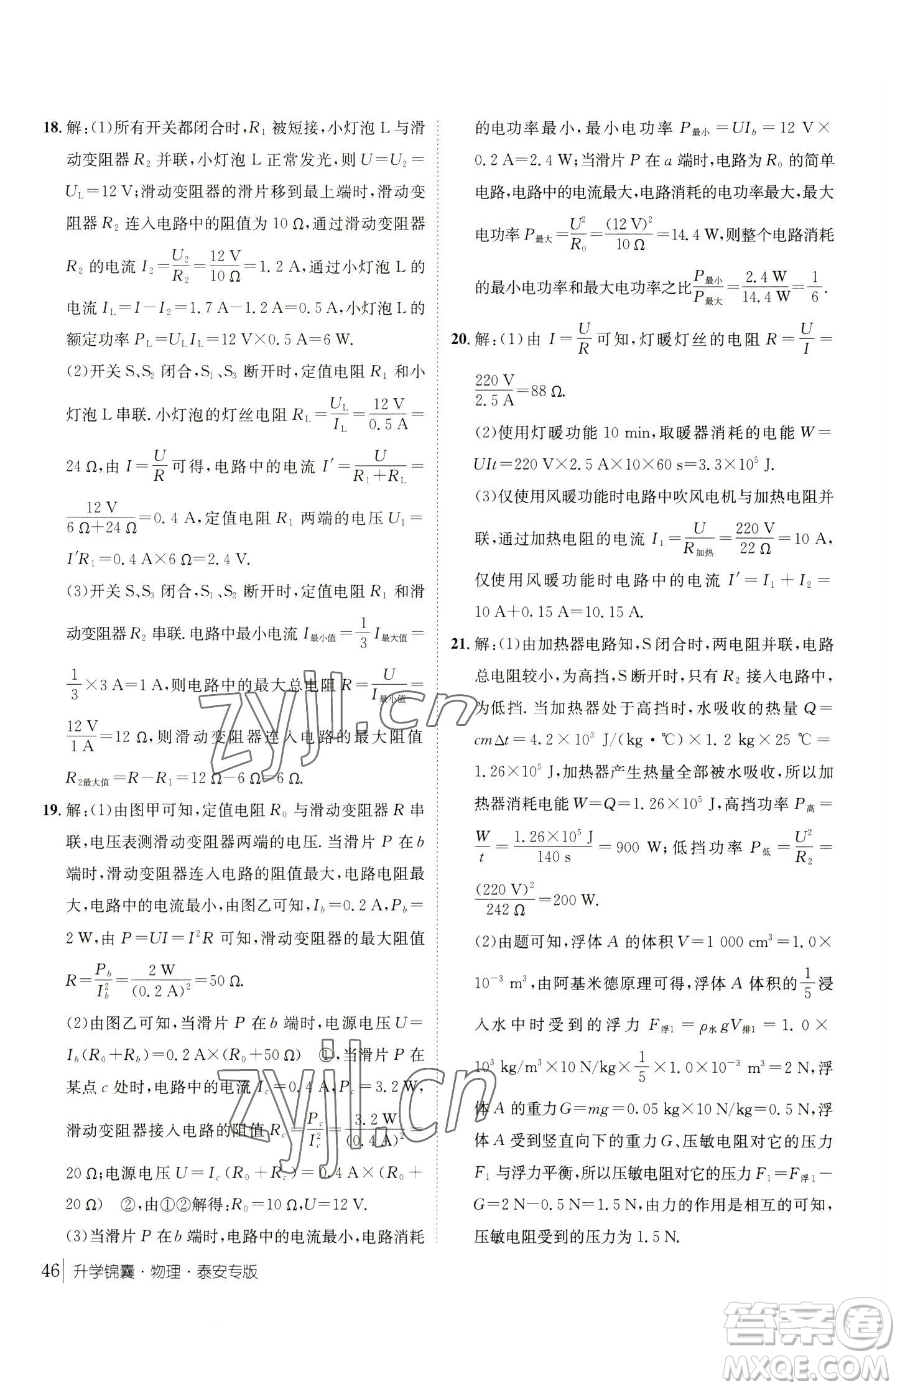 18. 解:(1)所有开关都闭合时,R₁ 被短接,小灯泡 L 与滑
动变阻器 R₂ 并联,小灯泡 L 正常发光,则 U=U₂
=U_L=12 V;滑动变阻器的滑片移到最上端时,滑动变
阻器 R₂ 连入电路中的阻值为 10 Ω,通过滑动变阻器
R₂ 的电流 I₂=U₂/R₂=12 V/10 Ω=1.2 A,通过小灯泡 L 的
电流 I_L=I-I₂=1.7 A-1.2 A=0.5 A,小灯泡 L 的
额定功率 P_L=U_LI_L=12 V×0.5 A=6 W.
(2)开关 S、S₂ 闭合,S₁、S₃ 断开时,定值电阻 R₁ 和小
灯泡 L 串联.小灯泡的灯丝电阻 R_L=U_L/I_L=12 V/0.5 A=
24 Ω,由 I=U/R可得,电路中的电流 I′=U/(R₁+R_L)=
12 V/(6 Ω+24 Ω)=0.4 A,定值电阻 R₁ 两端的电压 U₁=
I′R₁=0.4 A×6 Ω=2.4 V.
(3)开关 S、S₃ 闭合,S₁、S₂ 断开时,定值电阻 R₁ 与滑
动变阻器 R₂ 串联.电路中最小电流 I最小值=1/3 I最大值=
1/3×3 A=1 A,则电路中的最大总电阻 R=U/I最小值=
12 V/1 A=12 Ω,则滑动变阻器连入电路的最大阻值
R₂最大值=R-R₁=12 Ω-6 Ω=6 Ω.
19. 解:(1)由图甲可知,定值电阻 R₀ 与滑动变阻器 R 串
联,电压表测滑动变阻器两端的电压.当滑片 P 在 b
端时,滑动变阻器连入电路的阻值最大,总电阻最
大,电路中的电流最小,由图乙可知,I_b=0.2 A,P_b=
2 W,由 P=UI=I²R 可知,滑动变阻器的最大阻值
R=P_b/I_b²=2 W/(0.2 A)²=50 Ω.
(2)由图乙可知,当滑片 P 在 b 端时,电源电压 U=
I_b(R₀+R)=0.2 A×(R₀+50 Ω) ①,当滑片 P 在
某点 c 处时,电路中的电流 I_c=0.4 A,P_c=3.2 W,
滑动变阻器接入电路的阻值 R_c=P_c/I_c²=3.2 W/(0.4 A)²=
20 Ω;电源电压 U=I_c(R₀+R_c)=0.4 A×(R₀+
20 Ω) ②,由①②解得:R₀=10 Ω,U=12 V.
(3)当滑片 P 在 b 端时,电路中的电流最小,电路消耗
的电功率最小,最小电功率 P最小=UI_b=12 V×
0.2 A=2.4 W;当滑片 P 在 a 端时,电路为 R₀ 的简单
电路,电路中的电流最大,电路消耗的电功率最大,最大
电功率 P最大=U²/R₀=(12 V)²/10 Ω=14.4 W,则整个电路消耗
的最小电功率和最大电功率之比P最小/P最大=2.4 W/14.4 W=1/6.
20. 解:(1)由 I=U/R可知,灯暖灯丝的电阻 R=U/I=
220 V/2.5 A=88 Ω.
(2)使用灯暖功能 10 min,取暖器消耗的电能 W=
UIt=220 V×2.5 A×10×60 s=3.3×10⁵ J.
(3)仅使用风暖功能时电路中吹风电机与加热电阻并
联,通过加热电阻的电流 I₁=U/R加热=220 V/22 Ω=10 A,
仅使用风暖功能时电路中的电流 I′=I₁+I₂=
10 A+0.15 A=10.15 A.
21. 解:(1)由加热器电路知,S 闭合时,两电阻并联,电路
总电阻较小,为高挡,S 断开时,只有 R₂ 接入电路中,
为低挡.当加热器处于高挡时,水吸收的热量 Q=
cmΔt=4.2×10³ J/(kg·℃)×1.2 kg×25 ℃=
1.26×10⁵ J,加热器产生热量全部被水吸收,所以
加热器消耗电能 W=Q=1.26×10⁵ J,高挡功率 P高=
W/t=1.26×10⁵ J/140 s=900 W;低挡功率 P低=U²/R₂=
(220 V)²/242 Ω=200 W.
(2)由题可知,浮体 A 的体积 V=1 000 cm³=1.0×
10⁻³ m³,由阿基米德原理可得,浮体 A 体积的1/5浸
入水中时受到的浮力 F浮1=ρ水gV排1=1.0×
10³ kg/m³×10 N/kg×1/5×1.0×10⁻³ m³=2 N,浮
体 A 的重力 G=mg=0.05 kg×10 N/kg=0.5 N,浮
体 A 受到竖直向下的重力 G、压敏电阻对它的压力
F₁ 与浮力平衡,所以压敏电阻对它的压力 F₁=F浮1-
G=2 N-0.5 N=1.5 N,由力的作用是相互的可知,
压敏电阻受到的压力为 1.5 N.
46 升学锦囊·物理·泰安专版
zyjl.cn
zyjl.cn
答案圈
MXQE.COM